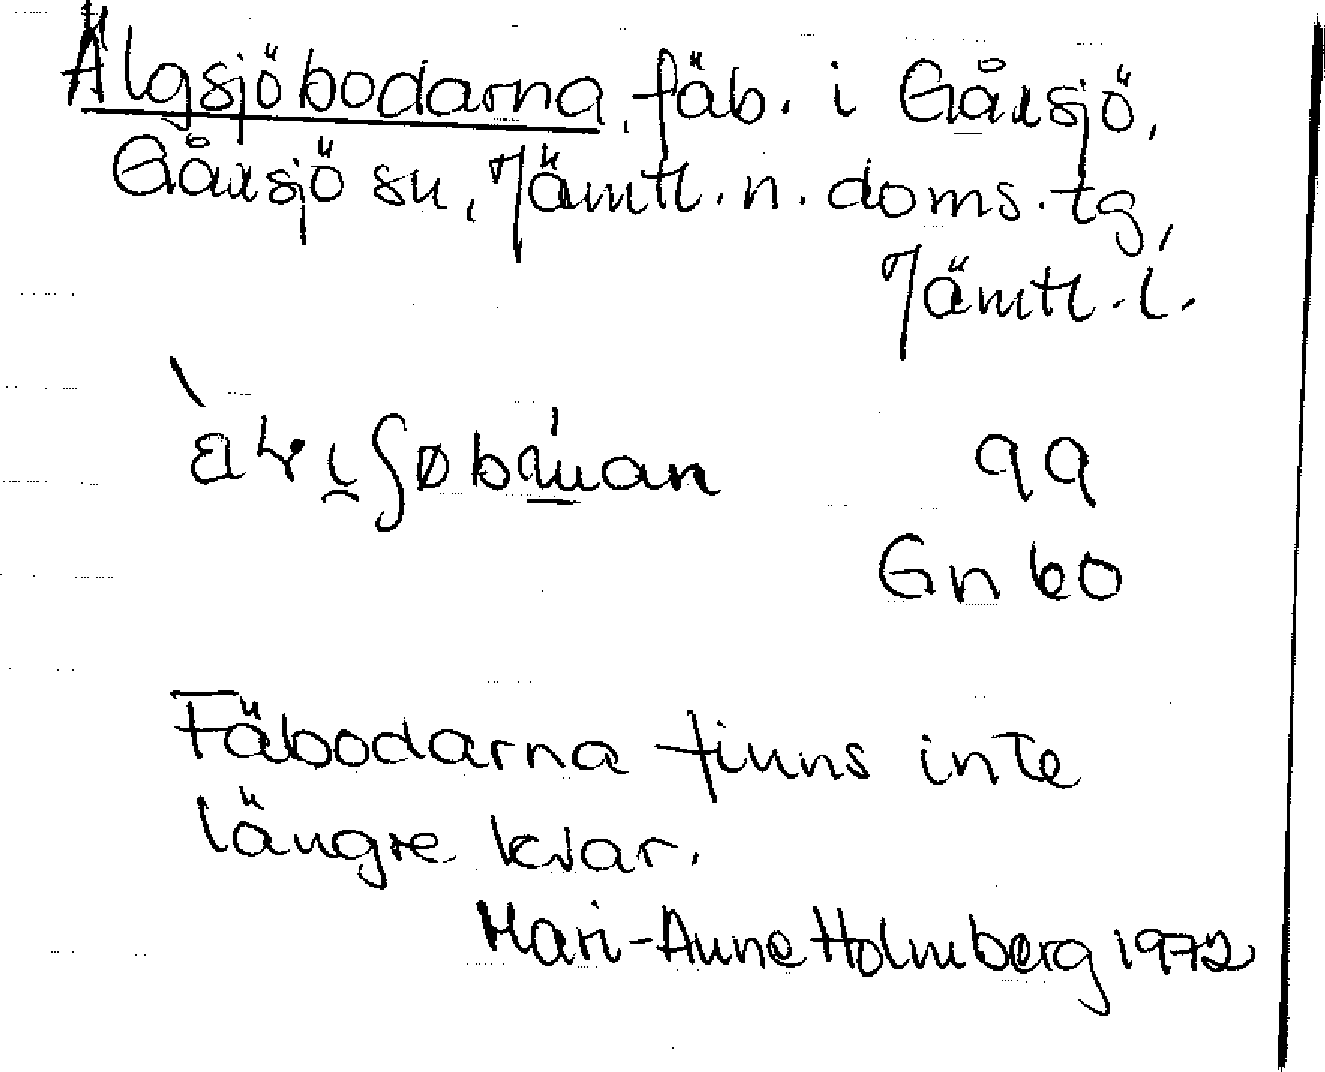 Älgsjöbodarna, fäb. i Gåxsjö,
Gåxsjö sn, Jämtl. n. doms. tg,
Jämtl. l.
99
Gn 60
Fäbodarna finns inte
längre kvar.
Mari-Anne Holmberg 1972